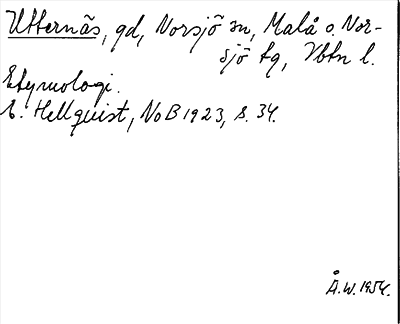 Utternäs, gd, Norsjö sn, Malå o. Nor-
sjö tg, Vbtn l.
Etymologi.
E. Hellquist, NoB 1923, s. 34.
Å.W. 1954.